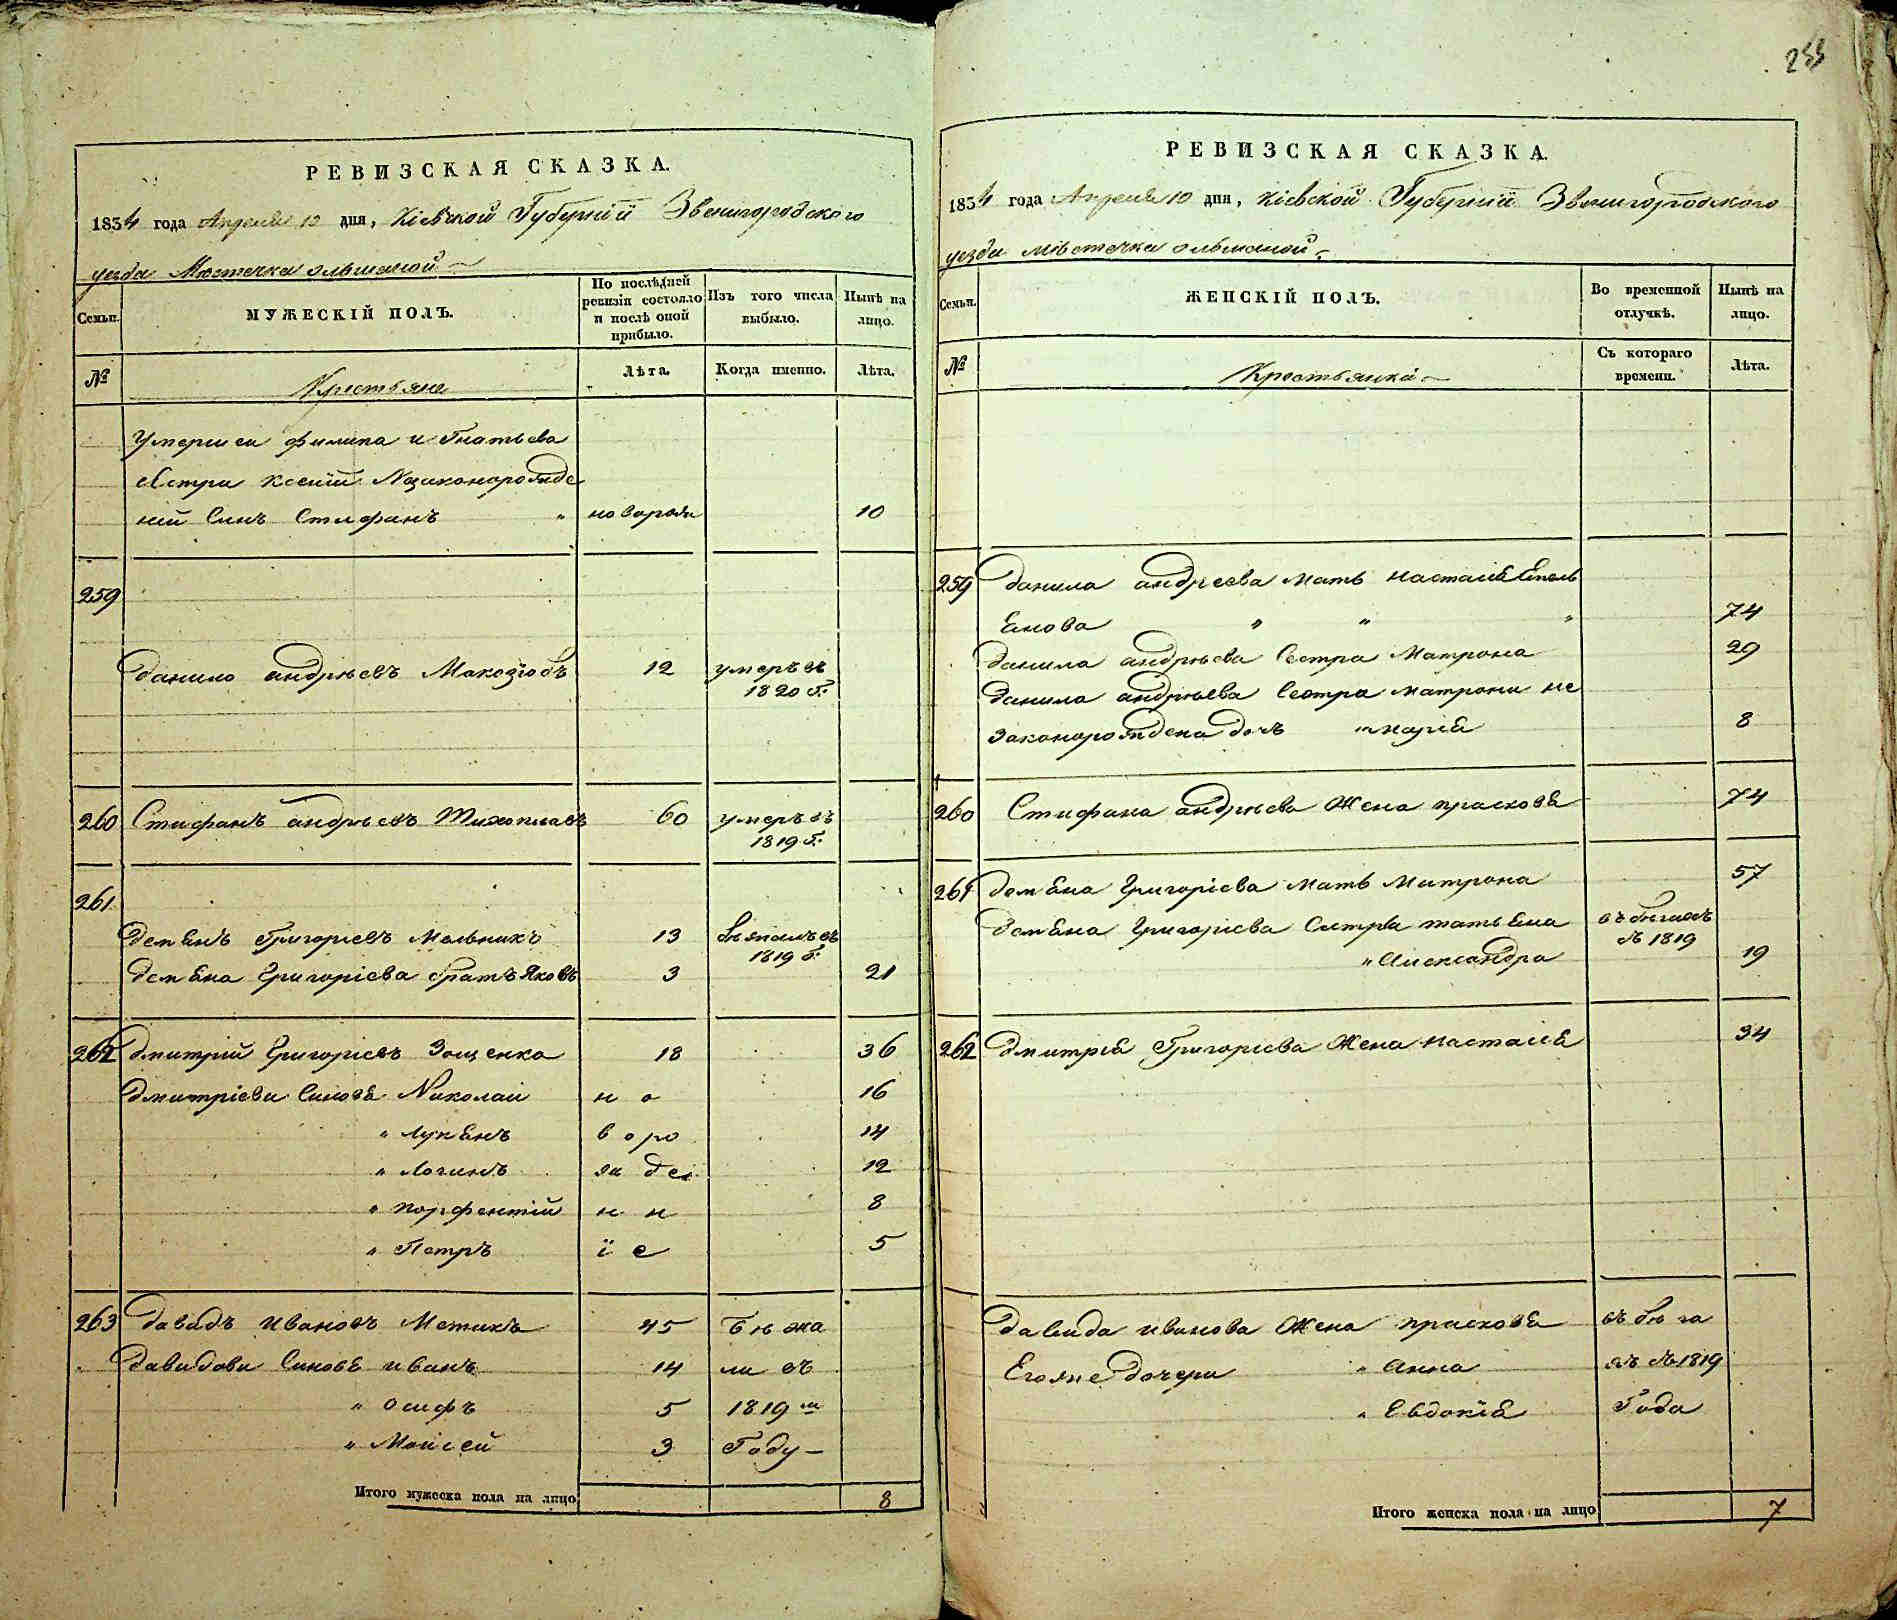 255
РЕВИЗСКАЯ СКАЗКА.
1834 года Апреля 10 дня, Кіевской Губерніи Звенигородского
уезда Местечка ольшаной
Семьи.
МУЖЕСКІЙ ПОЛЪ.
По послѣдней ревизіи состояло и послѣ оной прибыло.
Изъ того числа выбыло.
Нынѣ на лицо.
№
Крестьяне
Лѣта.
Когда именно.
Лѣта.
Умерших филипа и Гнатьева
сестри Ксеніи Незаконорожде
ній Синъ Стифанъ " новорож 10
259
данило андрѣевъ Макозіобъ 12 умеръ въ
1820 г.
260 Стифанъ андрѣевъ 60 умеръ въ
1819 г.
261
демьянъ Григоріевъ Мельникъ 13 въ
1819 г.
демьяна Григоріева братъ Яковъ 3 21
262 дмитрій Григоріевъ Зощенко 18 36
дмитріеви Синовя Николаи но 16
" Лукьянъ воро 14
" Логинъ жде 12
" порфентій нн 8
" Петръ іе 5
263 давидъ ивановъ Метикъ 45 Бѣжа
давидови Синовя иванъ 14 ли въ
" осифъ 5 1819 м
" Моисей 3 Году
Итого мужеска пола на лицо 8
РЕВИЗСКАЯ СКАЗКА.
1834 года Апреля 10 дня, Кіевской Губерніи Звенигородского
уезда містечка ольшаной
Семьи.
ЖЕНСКІЙ ПОЛЪ.
Во временной отлучкѣ.
Нынѣ на лицо.
№
Крестьянки
Съ котораго времени.
Лѣта.
259 данила андреева мать настасія Емель
янова " " " 74
данила андрѣева Сестра Матрона 29
данила андрѣева Сестра матрони не
законорождена дочъ марія 8
260 Стифана андрѣева Жена прасковя 74
261 демьяна Григоріева мать Матрона 57
демьяна Григоріева Сестри татьяна въ бѣгахъ
съ 1819
" Александра 19
262 дмитрія Григоріева Жена настасія 34
давида иванова Жена прасковя въ бѣга
Егоже дочери " Анна хъ съ 1819
" Евдокія Года
Итого женска пола на лицо 7